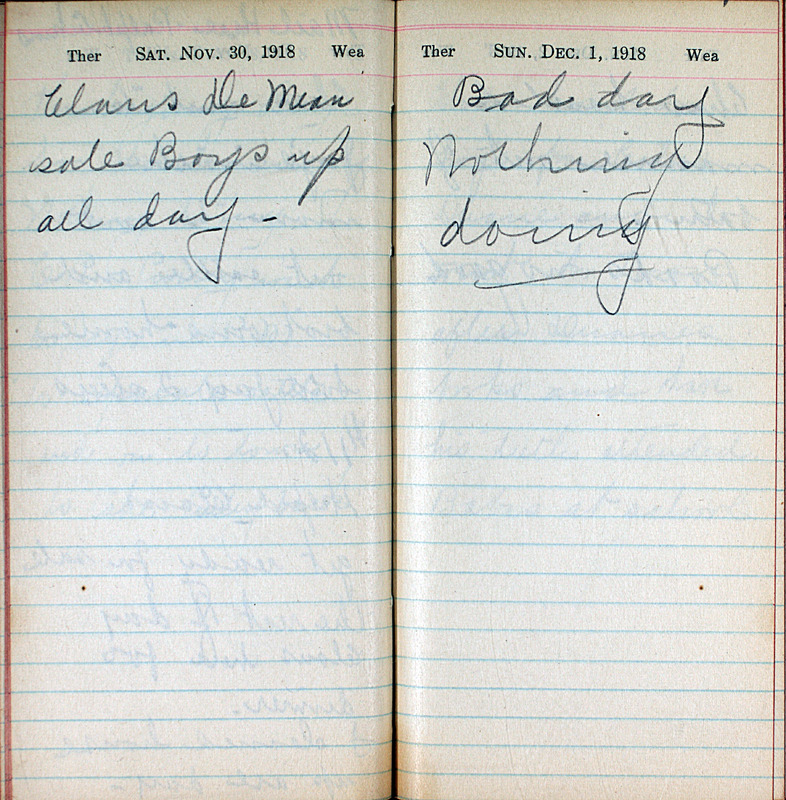 Ther SAT. NOV. 30, 1918 Wea
Claus DeMean
sale Boys up
all day -
Ther SUN. DEC. 1, 1918 Wea
Bad day
Nothing
doing